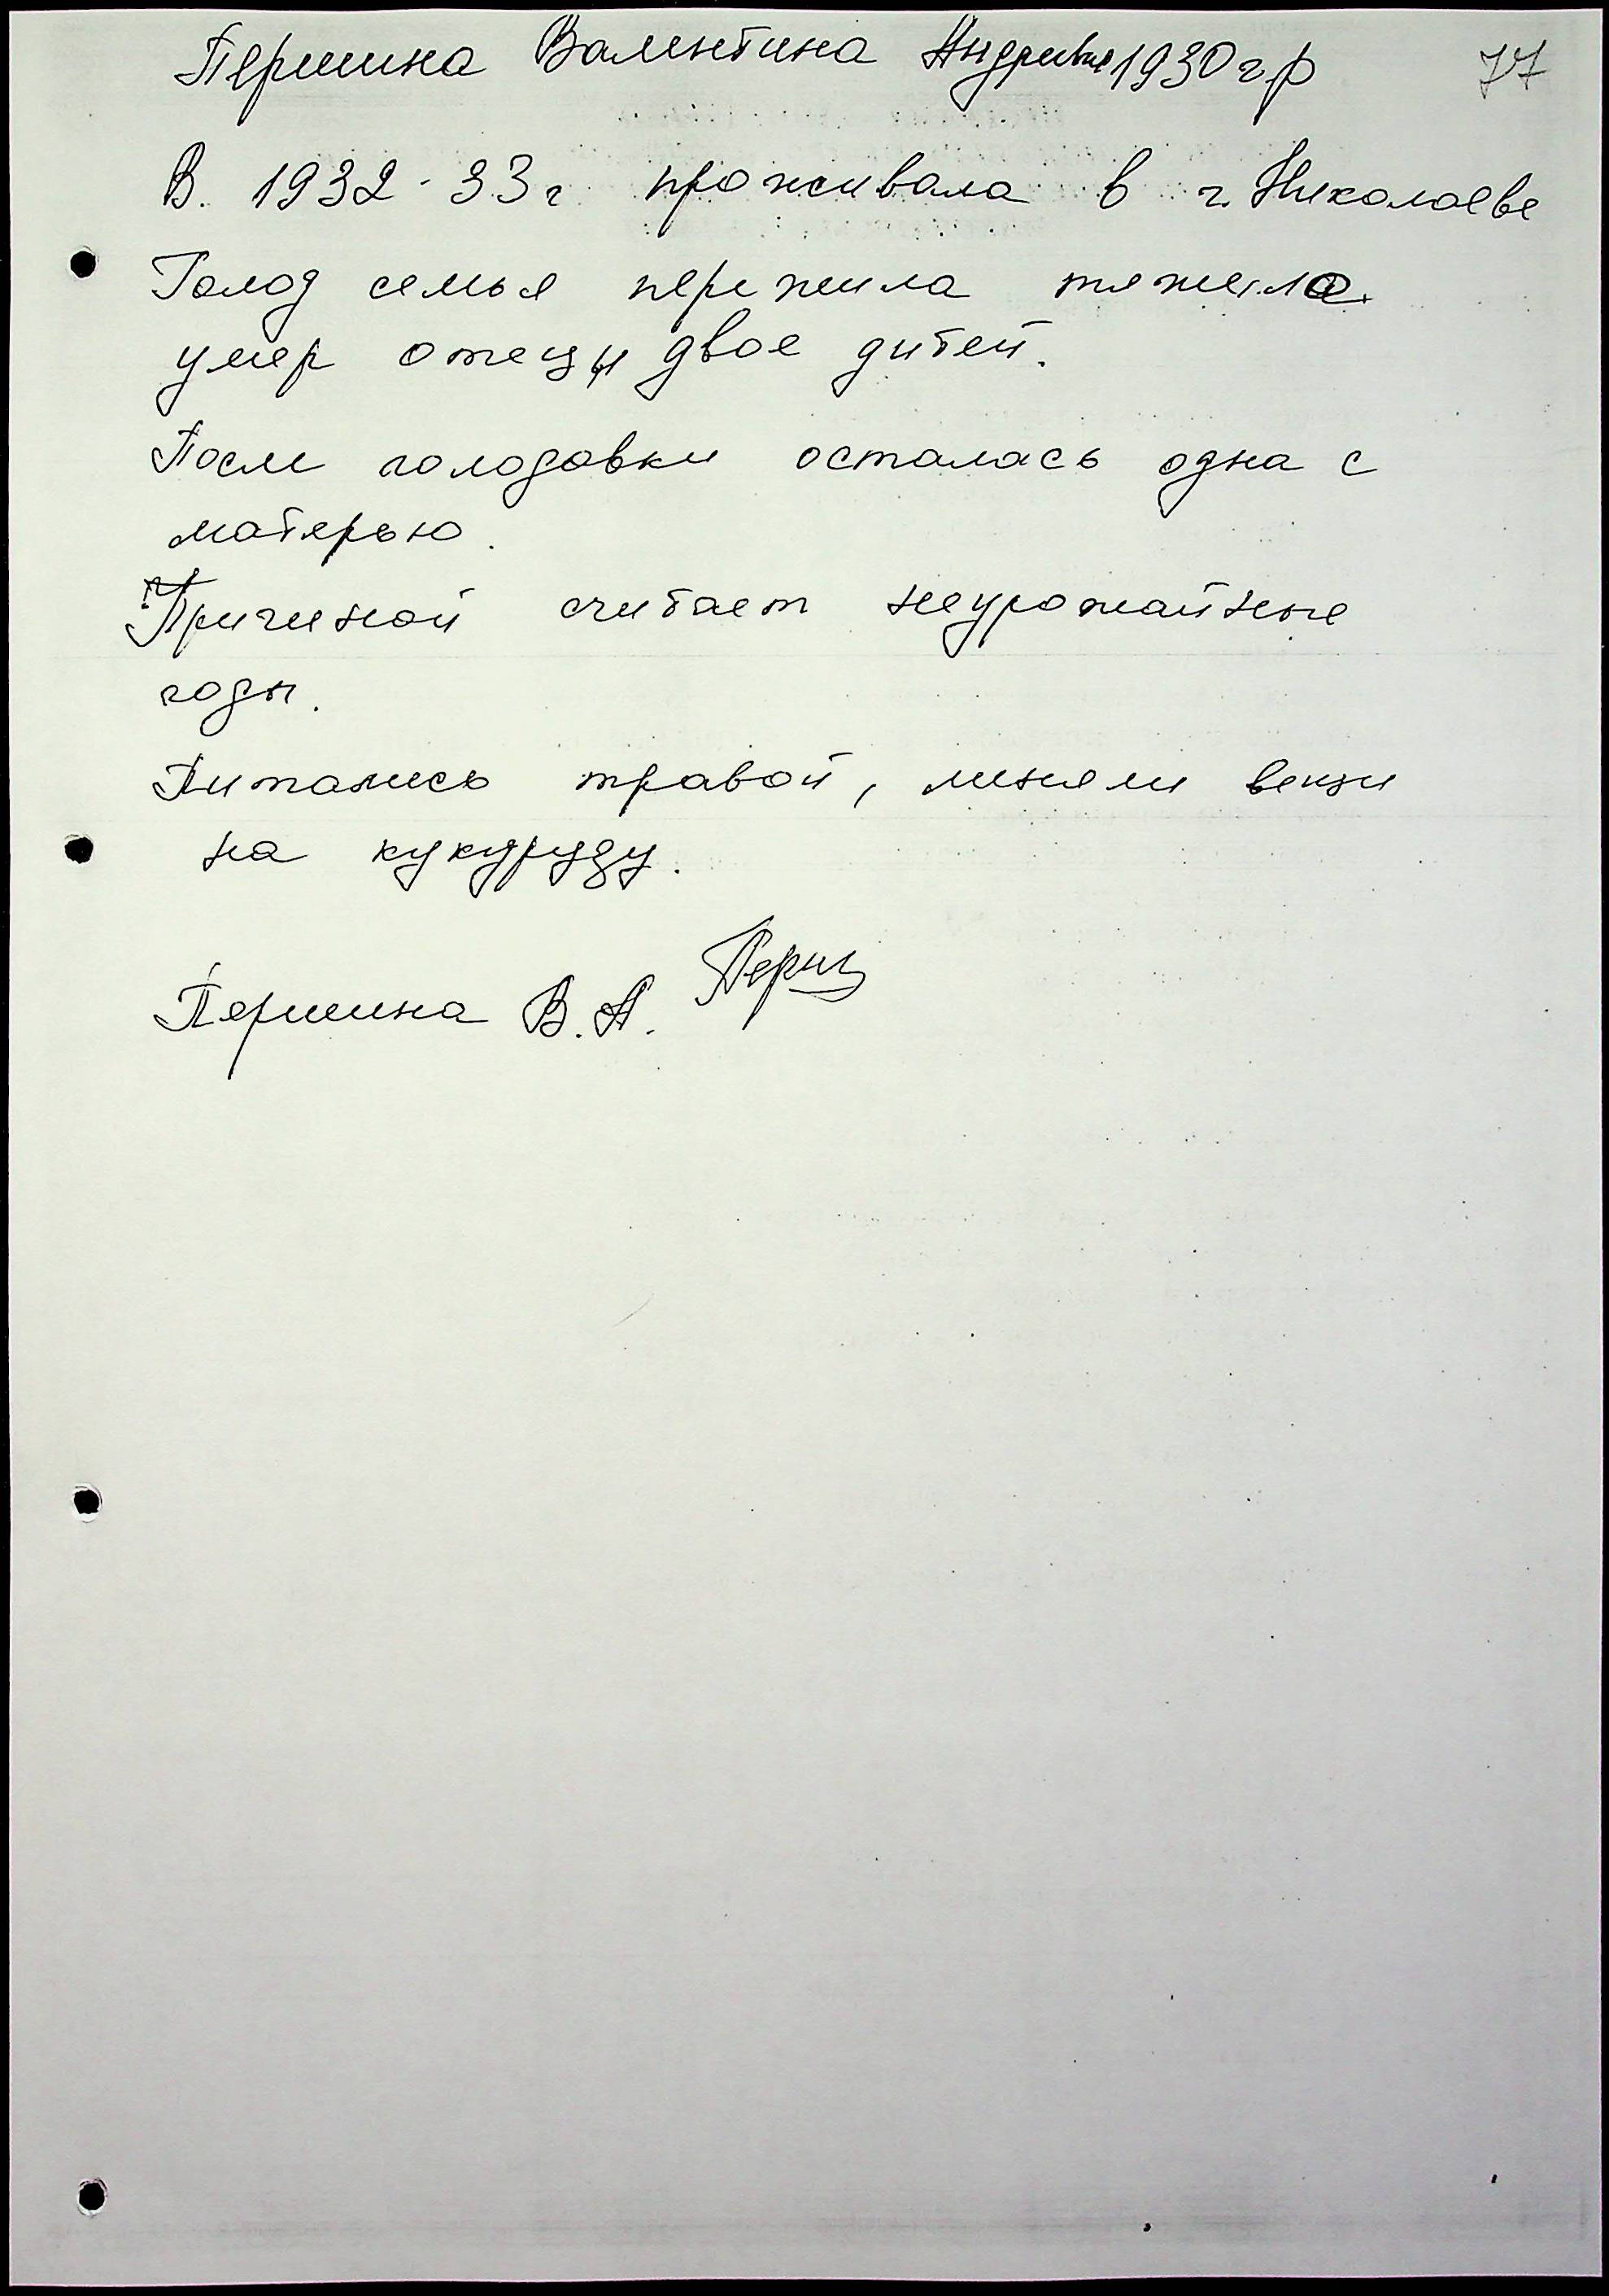 Першина Валентина Андреевна 1930 г р 77
В. 1932 - 33 г проживала в г. Николаеве
Голод семья пережила тяжело.
умер отец и двое дитей.
После голодовки осталась одна с
матерью.
Причиной считает неурожайные
годы.
Питались травой, меняли вещи
на кукурузу.
Першина В. А. Перш